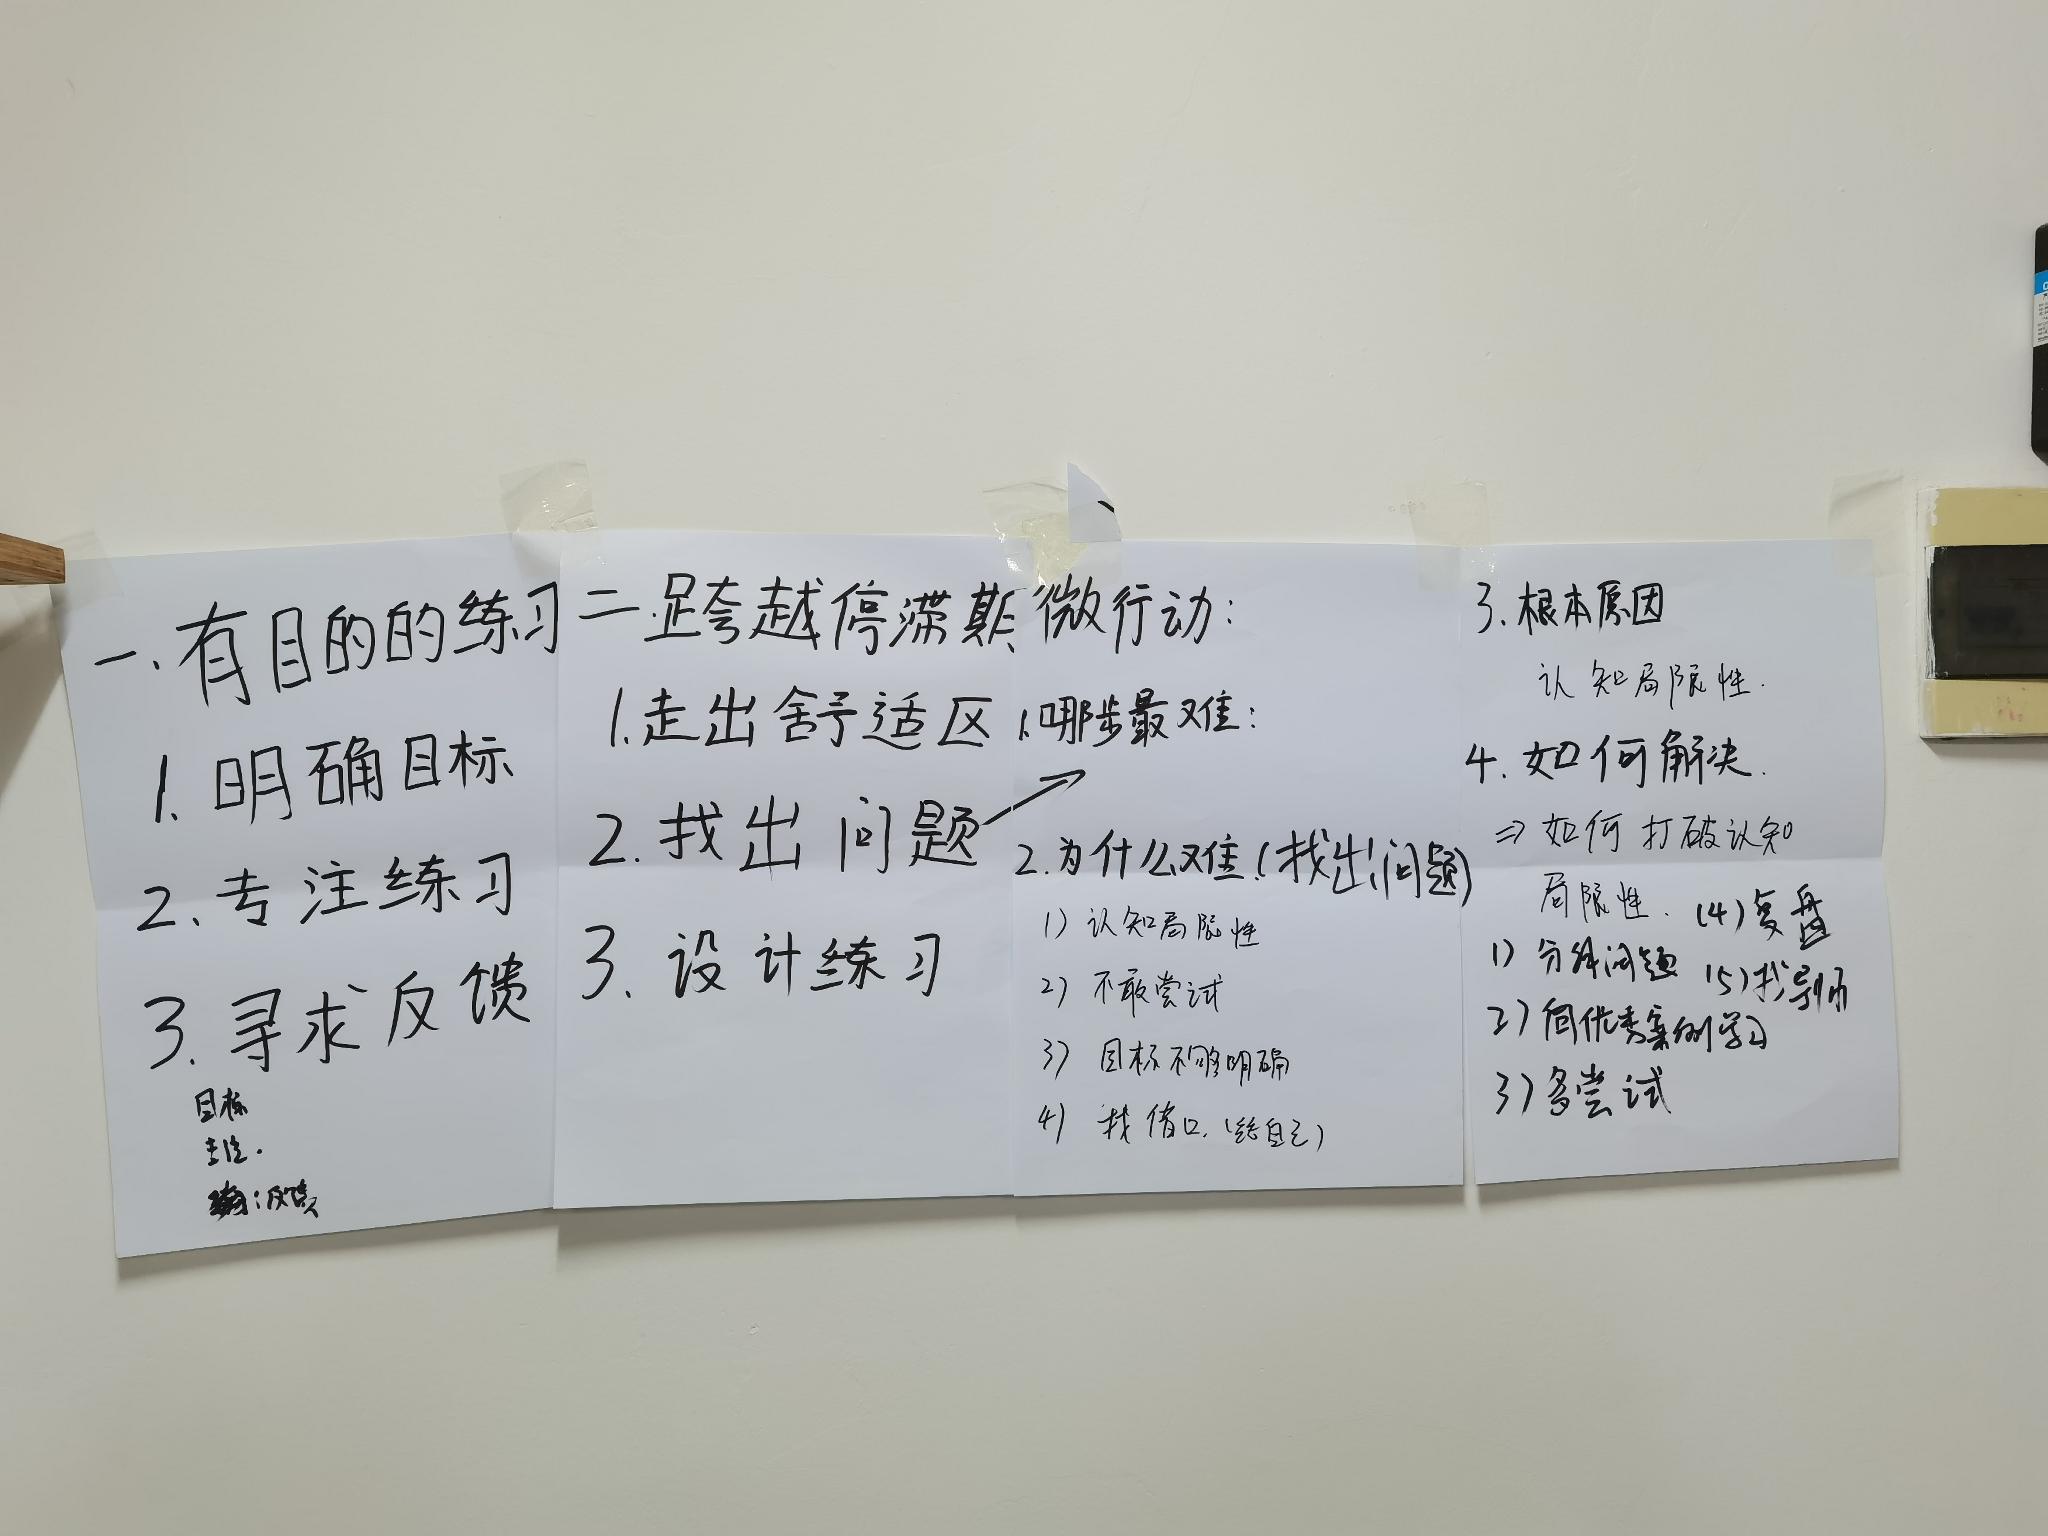 一、有目的的练习
1. 明确目标
2. 专注练习
3. 寻求反馈
目标
专注.
：反馈
二.跨越停滞期
1.走出舒适区
2.找出问题
3.设计练习
微行动：
1.哪步最难：
2.为什么难！(找出问题)
1) 认知局限性
2) 不敢尝试
3) 目标不够明确
4) 找借口.(给自己)
3. 根本原因
认知局限性.
4. 如何解决.
⇒ 如何打破认知
局限性.
1) 分解问题
2) 向优秀案例学习
3) 多尝试
(4) 复盘
(5) 找导师